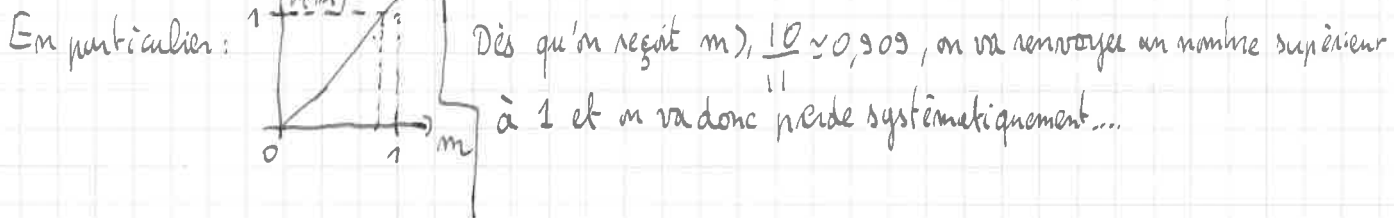 En particulier :
1
0 1 m
Dès qu'on reçoit m ⩾ 10/11 ≃ 0,909, on va renvoyer un nombre supérieur
à 1 et on va donc perde systématiquement....